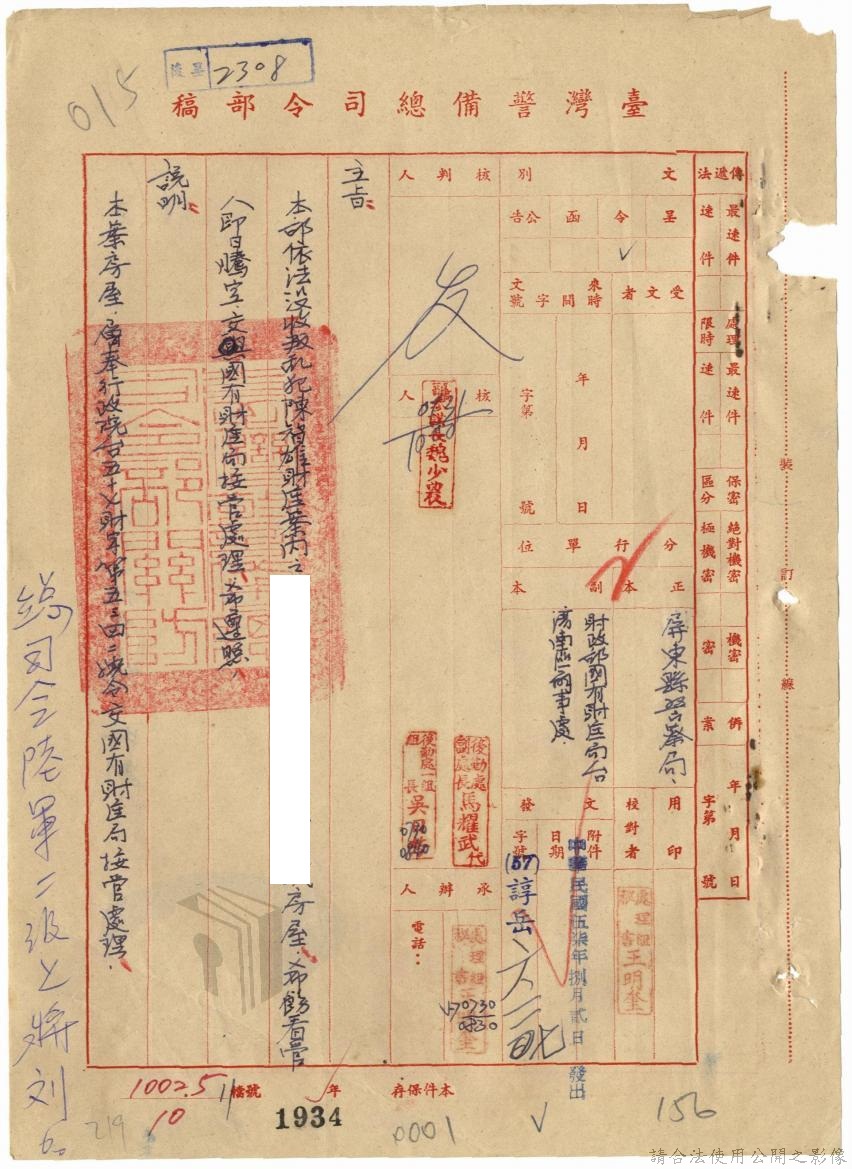 015
2308
臺灣警備總司令部稿
傳遞法
最速件
速件
處理限時
最速件
速件
保密區分
絕對機密
極機密
機密
密
併案
年月日
字第 號
文別
呈
令
函
公告
✓
受文者
來文時間字號
年月日
字第 號
分行單位
正本
副本
屏東縣警察局、
財政部國有財產局台
灣南區辦事處、
用印
校對者
處理組
秘書 王明奎
發文
附件
日期
字號
中華民國伍柒年捌月貳日 發出
(57)諄岳
核判人
核人
魏少農
後勤處
副處長 馬耀武代
後勤處一組
組長 吳
承辦人
電話:
處理組
570730
0830
主旨:
本部依法沒收叛亂犯陳智雄財產案內之
房屋、希飭看管
人即日騰空、交與國有財產局接管處理、希遵照、
說明:
本案房屋、層奉行政院台五十七財字第五三四二號令交國有財產局接管處理、
總司令陸軍二級上將刘
本件保存 年
檔號
1002.5
10
11
1934
0001
156
219
裝 訂 線
請合法使用公開之影像